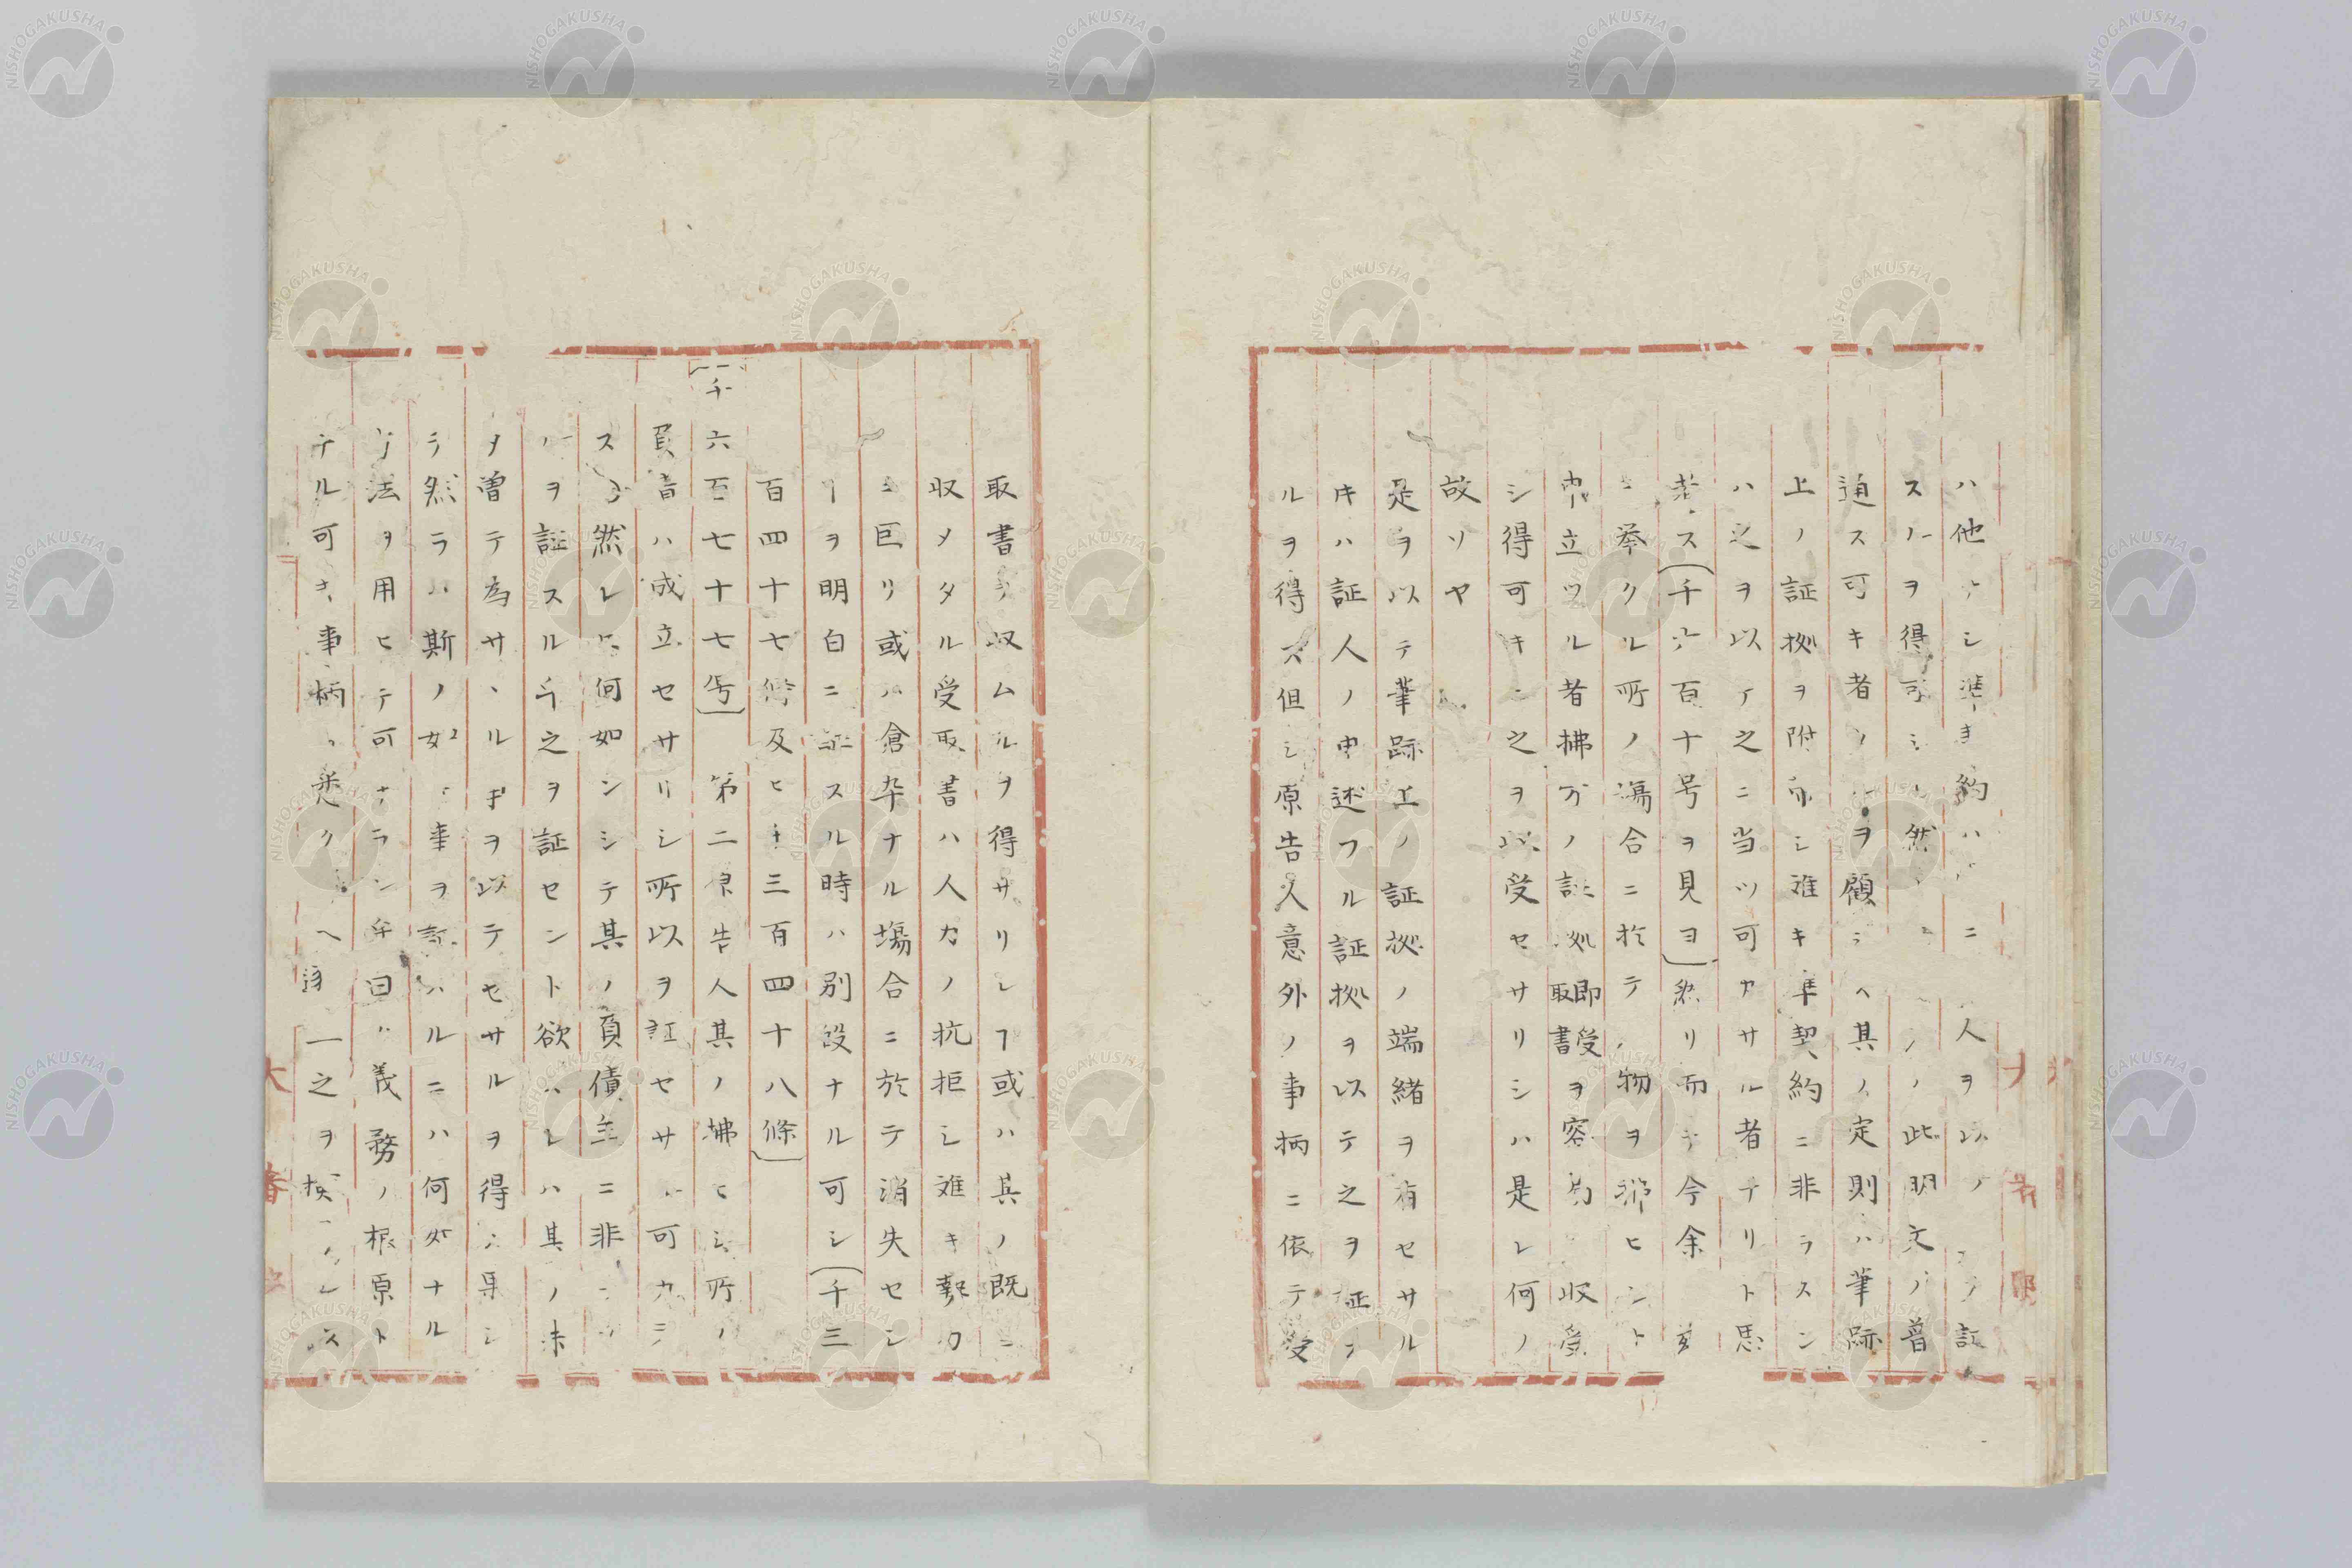 ハ他ナシ準契約ハニ人ヲ以ノヲ証
スルヲ得可シ然此明文ノ普
通ス可キ者ノヲ顧ヘ其ノ定則ハ筆跡
上ノ証拠ヲ附シ難キ準契約ニ非ラスン
ハ之ヲ以テ之ニ当ツ可カサル者ナリト思
考ス(千六百十号ヲ見ヨ)然リ而テ今余玆
ニ挙クル所ノ場合ニ於テ物ヲ掃ヒント
申立ツル者拂方ノ証拠即受取書ヲ容易収受
シ得可キニ之ヲ以受セサリシハ是レ何ノ
故ソヤ
是ヲ以テ筆跡上ノ証拠ノ端緒ヲ有セサル
キハ証人ノ申述フル証拠ヲ以テ之ヲ証ス
ルヲ得ス但シ原告人意外ノ事柄ニ依テ受
取書ヲ収ムルヲ得サリシヿ或ハ其ノ既ニ
収メタル受取書ハ人力ノ抗拒シ難キ勢力
ニ巨リ或ハ倉卒ナル塲合ニ於テ消失セシ
ヿヲ明白ニ証スル時ハ別段ナル可シ(千三
百四十七條及ヒ千三百四十八條)
(千六百七十七号)第二原告人其ノ拂ヒシ所ノ
負責ハ成立セサリシ所以ヲ証セサル可カラ
ス然レ𪜈何如ンシテ其ノ負債主ニ非
ルヲ証スル乎之ヲ証セント欲ハレハ其ノ未
タ曽テ為サヽルヿヲ以テセサルヲ得ス果シ
テ然ラハ斯ノ如キ事ヲ証ハルニハ何如ナル
方法ヲ用ヒテ可ナラン乎曰ハ義務ノ根原ト
ナル可キ事柄ハ悉ク逐一之ヲ挨